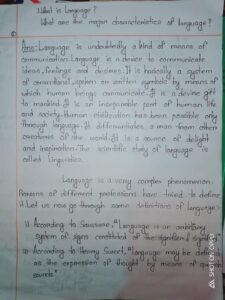 1. What is Language?
What are the major characteristics of language?
Ans:- Language is undoubtedly a kind of means of
communication. Language is a device to communicate
ideas, feelings and desires. It is basically a system
of conventional, spoken or written symbols by means of
which human beings communicate. It is a device gift
to mankind. It is an inseparable part of human life
and society. Human civilization has been possible only
through language. It differentiates a man from other
creatures of the world. It is a source of delight
and inspiration. The scientific study of language is
called Linguistics.
Language is a very complex phenomenon.
Persons of different professions have tried to define
it. Let us now go through some definitions of Language:
i) According to Saussure, "Language is an arbitrary
system of signs constituted of the signifier & signified
ii) According to Henry Sweet, "Language may be defined
as the expression of thought by means of speech
sounds."
SHOT ON